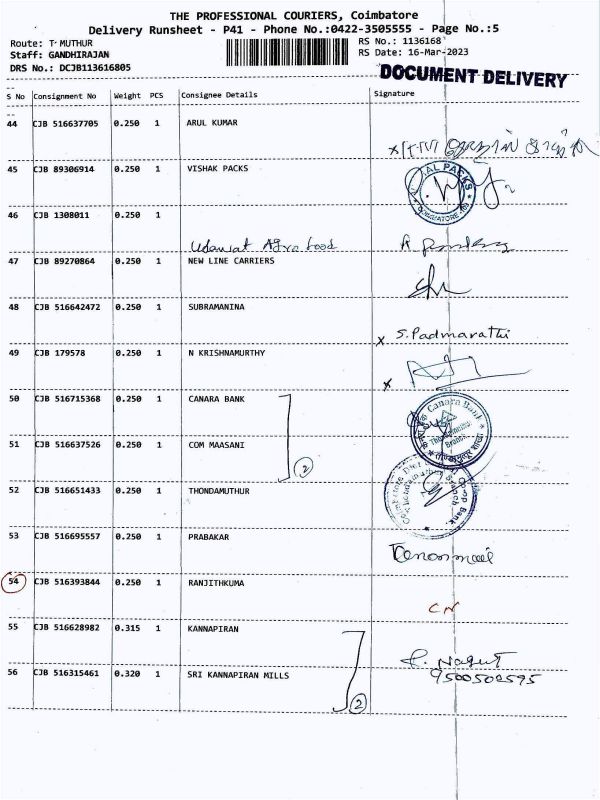 THE PROFESSIONAL COURIERS, Coimbatore
Delivery Runsheet - P41 - Phone No.:0422-3505555 - Page No.:5
Route: T MUTHUR
RS No.: 1136168
Staff: GANDHIRAJAN
RS Date: 16-Mar-2023
DRS No.: DCJB113616805
DOCUMENT DELIVERY
S No Consignment No Weight PCS Consignee Details Signature
44 CJB 516637705 0.250 1 ARUL KUMAR
45 CJB 89306914 0.250 1 VISHAK PACKS
46 CJB 1308011 0.250 1
Udawat Agro food
47 CJB 89270864 0.250 1 NEW LINE CARRIERS
48 CJB 516642472 0.250 1 SUBRAMANINA
x S.Padmarathi
49 CJB 179578 0.250 1 N KRISHNAMURTHY
x
50 CJB 516715368 0.250 1 CANARA BANK
Canara Bank
Branch
51 CJB 516637526 0.250 1 COM MAASANI
2
52 CJB 516651433 0.250 1 THONDAMUTHUR
53 CJB 516695557 0.250 1 PRABAKAR
54 CJB 516393844 0.250 1 RANJITHKUMA
CN
55 CJB 516628982 0.315 1 KANNAPIRAN
56 CJB 516315461 0.320 1 SRI KANNAPIRAN MILLS
9500502595
2